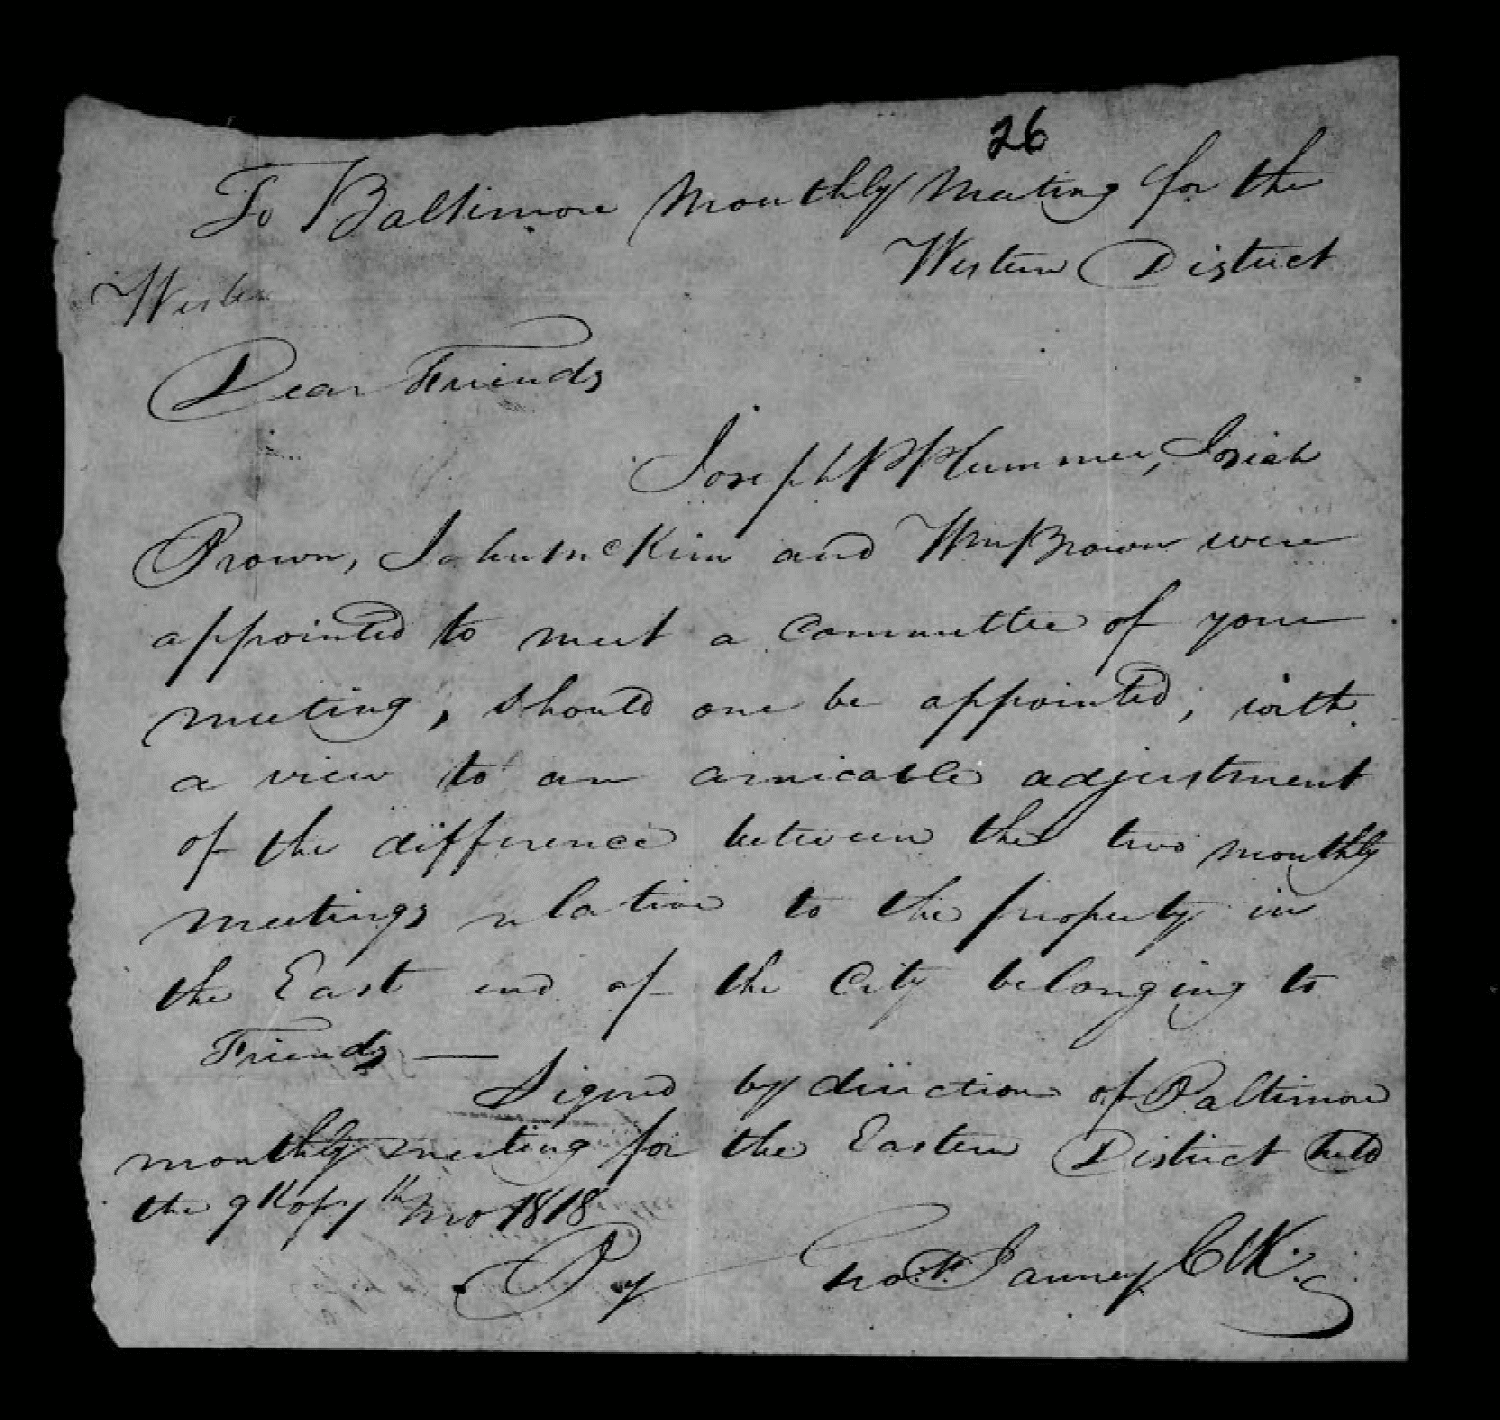 26
To Baltimore Monthly Meeting for the
Western District
Weste
Dear Friends
Joseph P Plummer, Josiah
Brown, John McKim and Wm Brown were
appointed to meet a Committee of your
meeting, should one be appointed, with
a view to an amicable adjustment
of the difference between the two monthly
meetings relative to the property in
the East end of the City belonging to
Friends —
Signed by direction of Baltimore
monthly meeting for the Eastern District held
the 9th of 7th mo 1818
By Janney Clk.